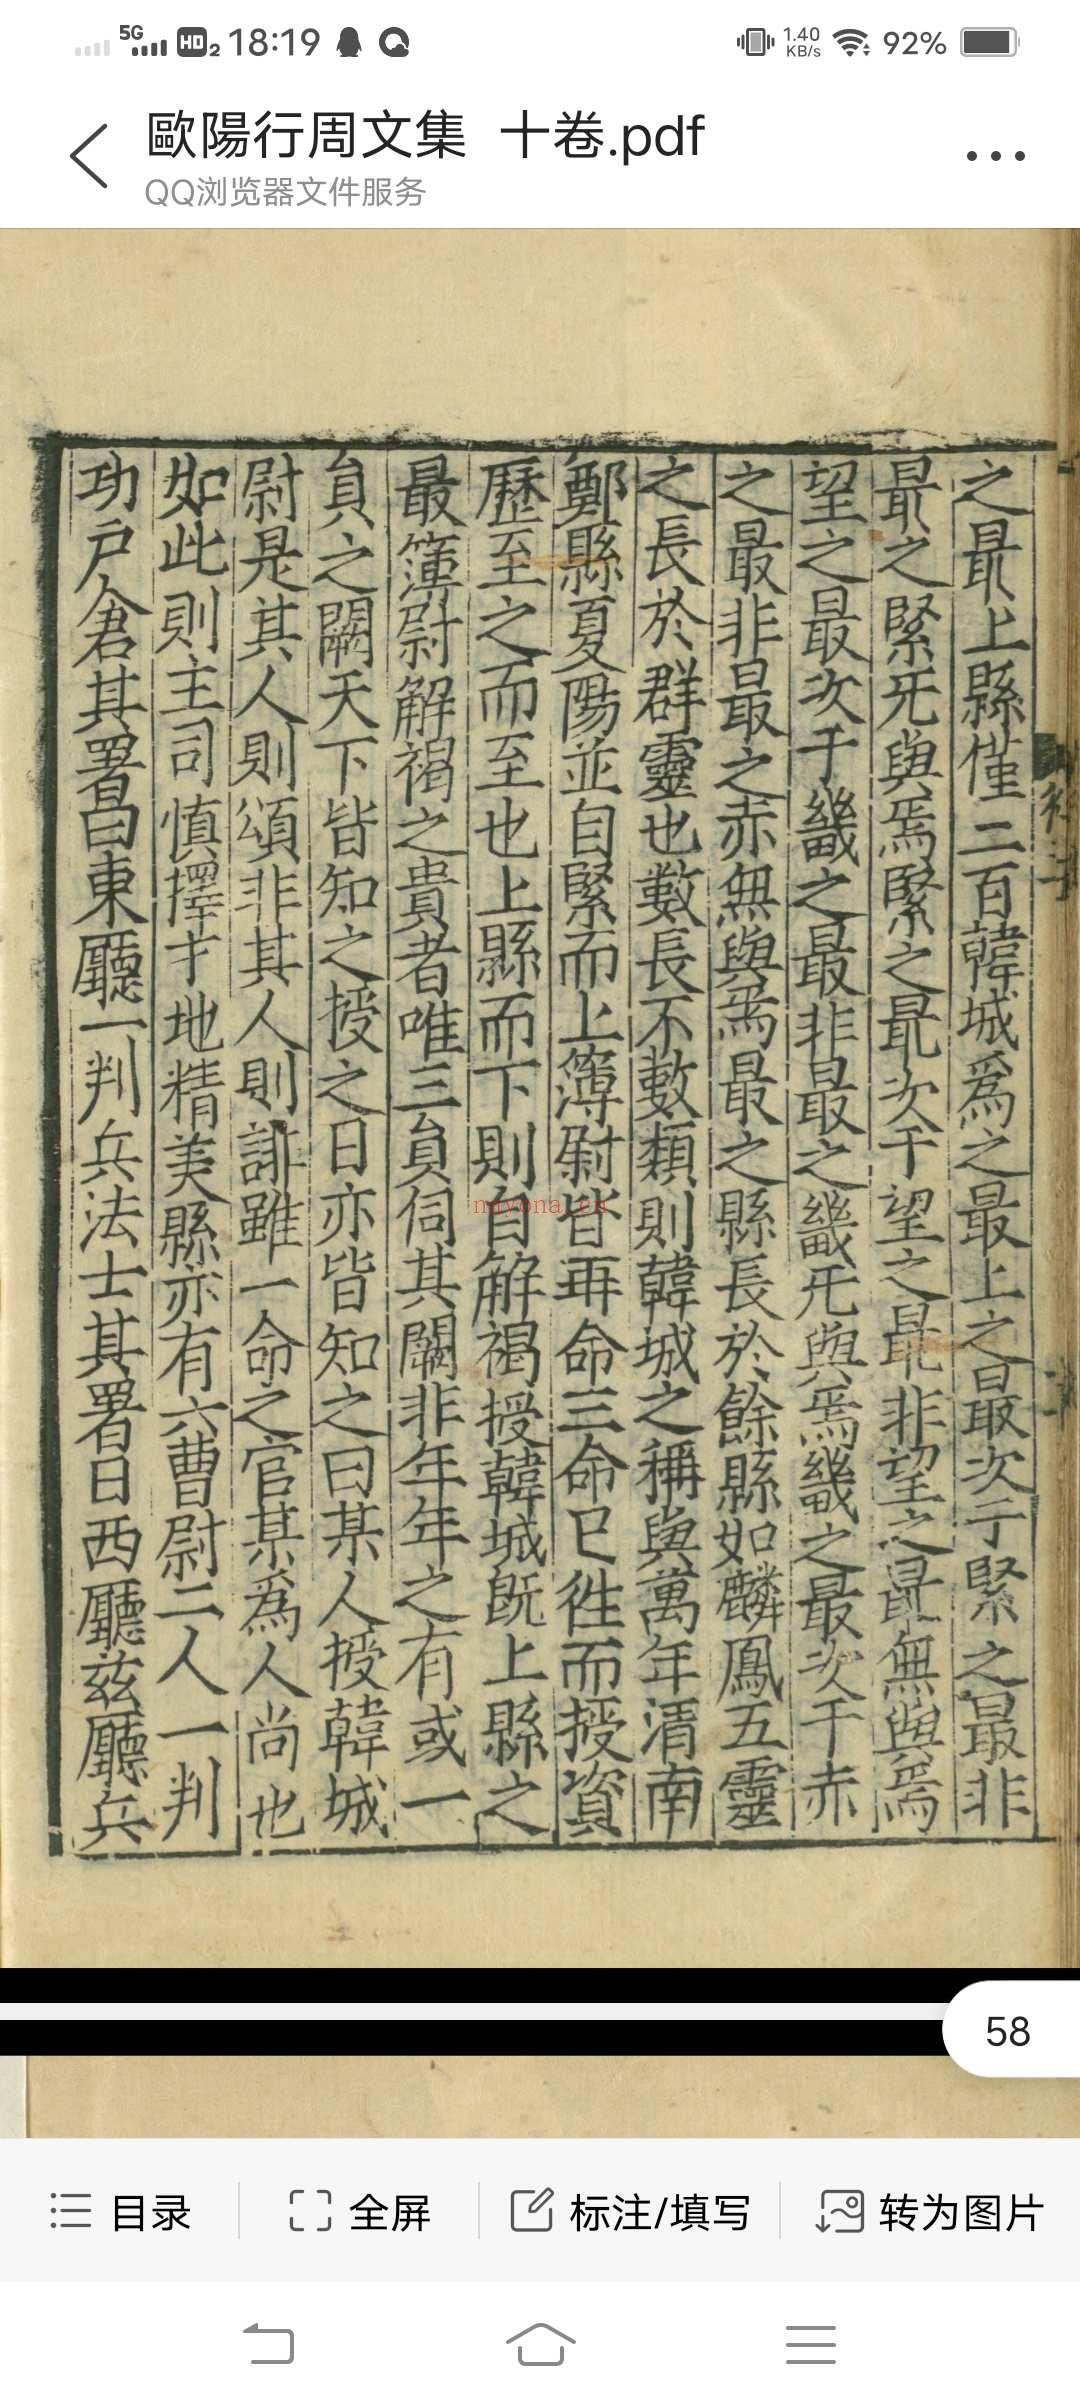 5G HD 2 18:19 1.40 KB/s 92%
歐陽行周文集 十卷.pdf
QQ浏览器文件服务
之最上縣僅二百韓城爲之最上之最次于緊之最非
最之緊旡與焉緊之最次于望之最非望之最無與焉
望之最次于畿之最非最之畿旡與焉畿之最次于赤
之最非最之赤無與焉最之縣長於餘縣如麟鳳五靈
之長於群靈也數長不數類則韓城之稱與萬年清南
鄭縣夏陽並自緊而上簿尉皆再命三命已徃而授資
歷至之而至也上縣而下則自解褐授韓城旣上縣之
最簿尉解褐之貴者唯三負伺其闕非年年之有或一
負之闕天下皆知之授之日亦皆知之曰某人授韓城
尉是其人則頌非其人則誹雖一命之官某爲人尚也
如此則主司慎擇才地精美縣亦有六曹尉二人一判
功戸倉其署曰東廳一判兵法士其署曰西廳兹廳兵
nayona.cn
58
目录 全屏 标注/填写 转为图片